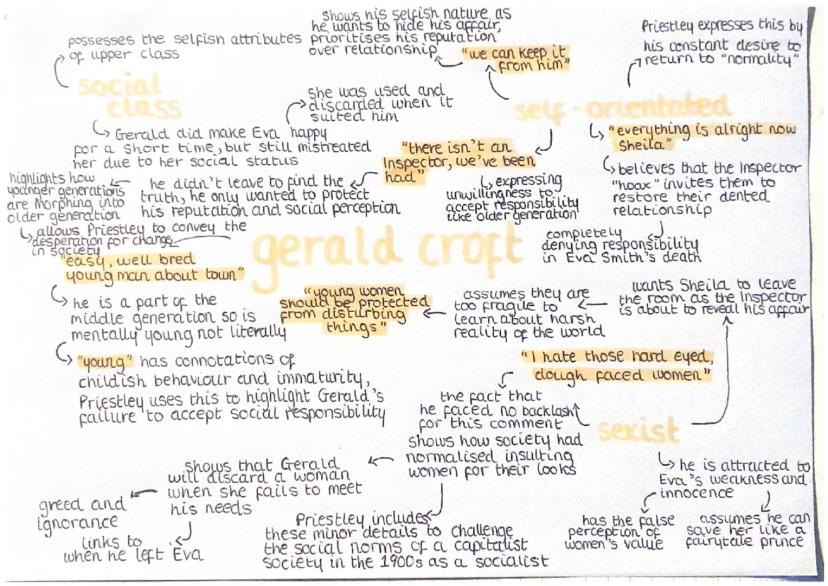 possesses the selfish attributes
of upper class
social
class
Gerald did make Eva happy
for a short time, but still mistreated
her due to her social status
she was used and
discarded when it
suited him
shows his selfish nature as
he wants to hide his affair,
prioritises his reputation
over relationship
"we can keep it
from him"
self-orientated
Priestley expresses this by
his constant desire to
return to "normality"
"everything is alright now
Sheila"
believes that the Inspector
"hoax" invites them to
restore their dented
relationship
completely
denying responsibility
in Eva Smith's death
"there isn't an
Inspector, we've been
had"
expressing
unwillingness to
accept responsibility
like older generation
he didn't leave to find the
truth, he only wanted to protect
his reputation and social perception
highlights how
younger generations
are morphing into
older generation
allows Priestley to convey the
desperation for change
in society
gerald croft
"easy, well bred
young man about town"
he is a part of the
middle generation so is
mentally young not literally
"young" has connotations of
childish behaviour and immaturity,
Priestley uses this to highlight Gerald's
failure to accept social responsibility
"young women
should be protected
from disturbing
things"
assumes they are
too fragile to
learn about harsh
reality of the world
wants Sheila to leave
the room as the Inspector
is about to reveal his affair
"I hate those hard eyed,
dough faced women"
sexist
the fact that
he faced no backlash
for this comment
shows how society had
normalised insulting
women for their looks
shows that Gerald
will discard a woman
when she fails to meet
his needs
greed and
ignorance
links to
when he left Eva
Priestley includes
these minor details to challenge
the social norms of a capitalist
society in the 1900s as a socialist
he is attracted to
Eva's weakness and
innocence
has the false
perception of
women's value
assumes he can
save her like a
fairytale prince